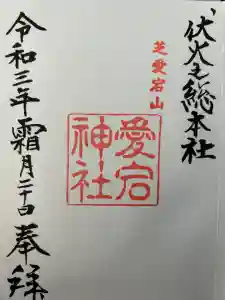 伏火之総本社
芝愛宕山
愛宕
神社
奉拝
令和三年霜月二十日